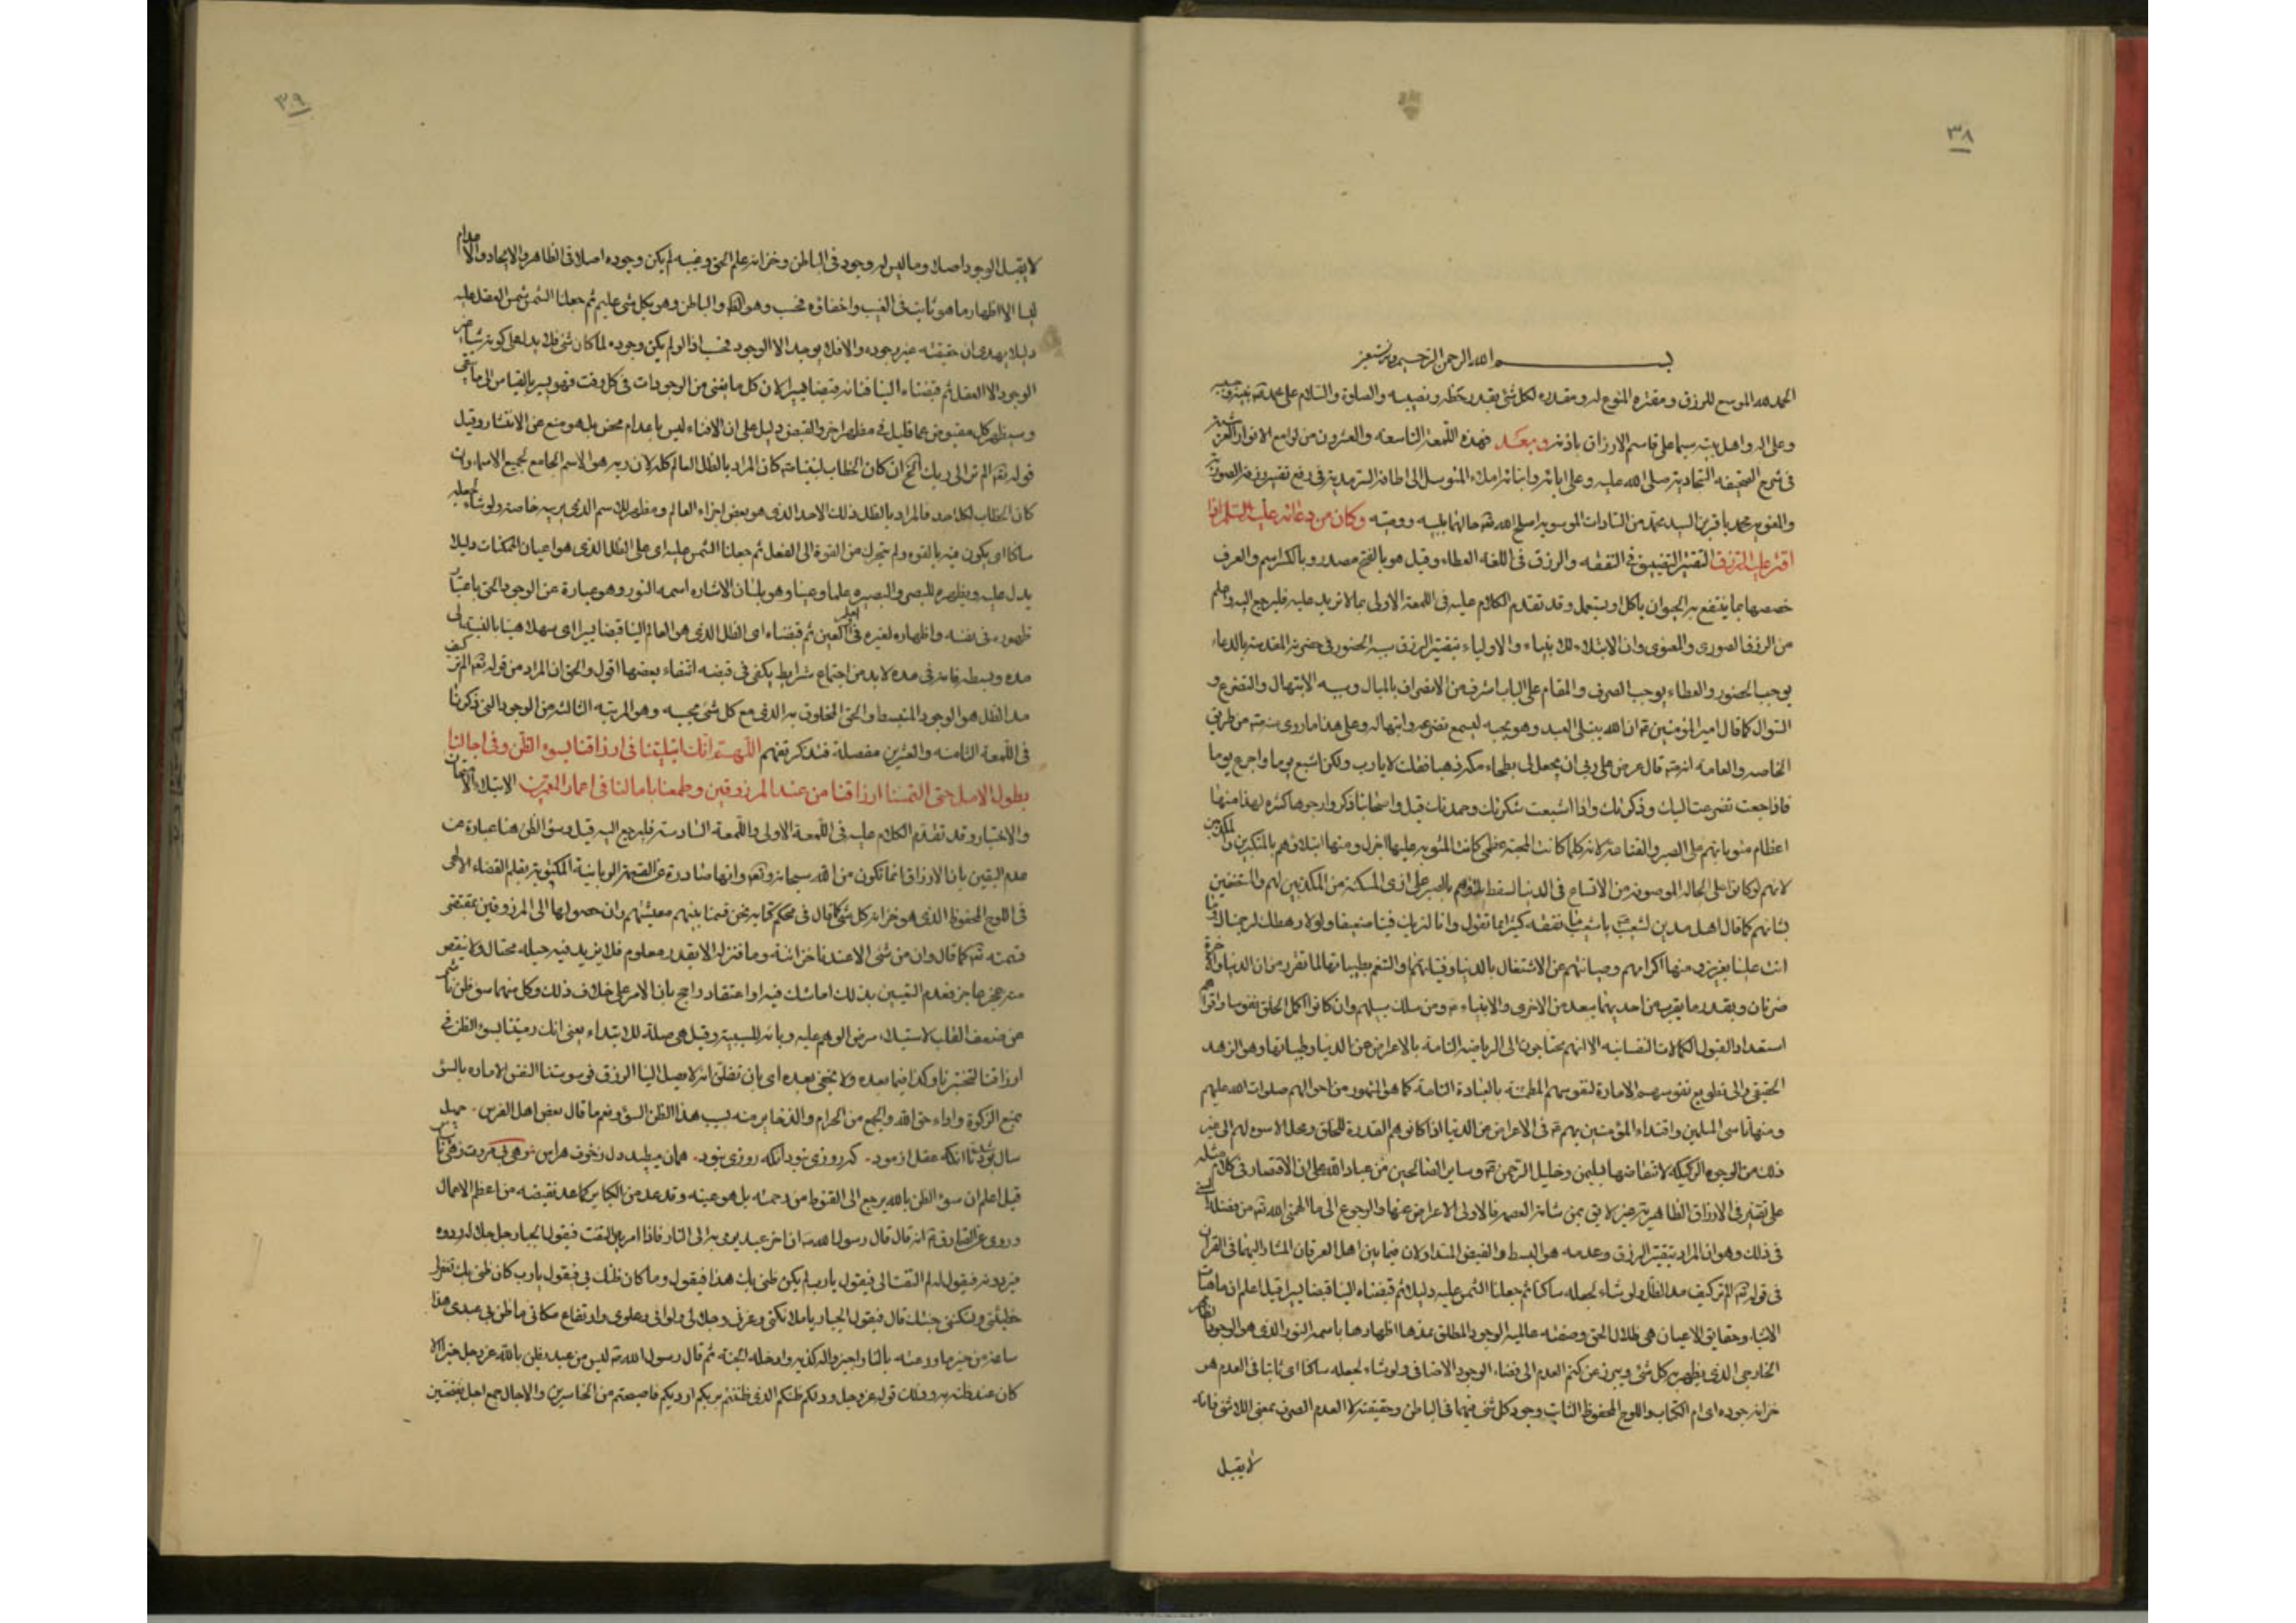 ٣٨
بسم الله الرحمن الرحيم وبه نستعين
الحمد لله الموسع للرزق ومقتره المنوع له ومقدره لكل شئ بقدر حظه ونصيبه والصلوة والسلام على محمد
وعلى اله واهل بيته سيما على قاسم الارزاق باذنه وبعد فهذه اللمعة التاسعة والعشرون من لوامع الانوار العرشية
فى شرح الصحيفه السجادية صلى الله عليه وعلى ابائه وابنائه املاء المتوسل الى الطافه السرمدية فى رفع تقتير رزقه الصورية
والمعنوية محمد باقر بن السيد محمد من السادات الموسويه اصلح الله حالهما بنبيه ووصيه وكان من دعائه عليه السلم اذا
اقتر عليه الرزق التقتير التضييق فى النفقه والرزق فى اللغه العطاء وقيل هو بالفتح مصدر وبالكسر اسم والعرف
خصصها بما ينتفع به الحيوان بأكل او يستعمل وقد تقدم الكلام عليه فى اللمعة الاولى بما لا نزيد عليه فليرجع اليه واعلم
من الرزق الصورى والمعنوى وان الابتلاء للانبياء والاولياء بتقتير الرزق سبه الحضور فى حضرته المقدسه بالدعاء
يوجب الحضور والعطاء يوجب الصرف والمقام على الباب اشرف من الانصراف بالمبال وسبه الابتهال والتضرع و
السوال كما قال امير المؤمنين ع ان الله يبتلى العبد وهو يحبه ليسمع تضرعه وابتهاله وعلى هذا ما روى عنه من طريق
الخاصه والعامه انه قال عرض على ربى ان يجعل لى بطحاء مكه ذهبا فقلت لا يا رب ولكن اشبع يوما واجوع يوما
فاذا جعت تضرعت اليك وذكرتك واذا اشبعت شكرتك وحمدتك قيل واصحابنا ذكروا وجوها كثيره لهذا منها
اعظام مثوباتهم على الصبر والقناعة لانه كلما كانت المحنة عظمى كانت المثوبه عليها اجزل ومنها ابتلاؤهم بالمتكبرين والمكذبين
لانهم لو كانوا على الحاله الموصوفه من الاتساع فى الدنيا لسقط بلواهم بالصبر على اذى المسكنة من المكذبين لهم والمستخفين
بشانهم كما قال اهل مدين لشعيب يا شعيب ما نفقه كثيرا مما تقول وانا لنريك فينا ضعيفا ولولا رهطك لرجمناك وما
انت علينا بعزيز ومنها اكرامهم وصيانتهم عن الاشتغال بالدنيا وقنياتها والتنعم بطيباتها لما تقرر من ان الدنيا والاخرة
ضرتان وبقدر ما يقرب من احديهما يبعد من الاخرى والانبياء ومن سلك سبيلهم وان كانوا اكمل الخلق نفوسا واقواهم
استعدادا لقبول الكمالات النفسانيه الا انهم محتاجون الى الرياضه التامة بالاعراض عن الدنيا وطيباتها وهو الزهد
الحقيقى والى تطويع نفوسهم الامارة لنفوسهم المطمئنة بالعبادة التامة كما هو المشهور من احوالهم صلوات الله عليهم
ومنها تاسى المسلمين واقتداء المؤمنين بهم فى الاعراض عن الدنيا اذا كانوا هم القدرة للخلق ومحل الاسوة لهم الى غير
ذلك من الوجوه الركيكة لانتقاضها بسليمن وخليل الرحمن وساير الصالحين من عباد الله على ان الاقتصار فى كلام مثله
على تقتير فى الارزاق الظاهرية غير لائق بمن شانه العصمه فالاولى الاعراض عنها والرجوع الى ما الهمنى الله من فضله
فى ذلك وهو ان المراد بتقتير الرزق وعدمه هو البسط والقبض المتداولان فيما بين اهل العرفان المشار اليهما فى القران
فى قوله الم تر كيف مد الظل ولو شاء لجعله ساكنا ثم جعلنا الشمس عليه دليلا ثم قبضناه الينا قبضا يسيرا قيل اعلم ان ماهيات
الاشياء وحقايق الاعيان هى ظلال الحق وصفته عالمية الوجود المطلق بمدها اظهارها باسمه النور الذى هو الوجود الظاهر
الخارجى الذى يظهر به كل شئ ويبرز من كتم العدم الى فضاء الوجود الاضافى ولو شاء لجعله ساكنا اى ثابتا فى العدم هو
خزانة جوده اى ام الكتاب واللوح المحفوظ الثابت وجود كل شئ فيهما فى الباطن وحقيقته لا العدم الصرف بمعنى اللاشئ فانه
لا يقبل
٣٩
لا يقبل الوجود اصلا وما ليس له وجود فى الباطن وخزانة علم الحق وغيبه لم يكن وجوده اصلا فى الظاهر والايجاد والاعدام
ليسا الا اظهار ما هو ثابت فى الغيب واخفاؤه فحسب وهو الظاهر والباطن وهو بكل شئ عليم ثم جعلنا الشمس شمس العقل عليه
دليلا يهدى ان حقيقته غير وجوده والا فلا يوجد الا الوجود فحسب اذ لو لم يكن وجوده لما كان شئ فلا يدل على كونه شيئا غير
الوجود الا العقل ثم قبضناه الينا قبضا يسيرا لان كل ما يفنى من الوجودات فى كل وقت فهو يسير بالقياس الى ما يبقى
وسيظهر كل مقبوض عما قليل فى مظهر اخر والقبض دليل على ان الافناء ليس باعدام محض بل هو منع عن الانتشار وقيل
قوله تعه الم تر الى ربك الخ ان كان الخطاب كان المراد بالظل العالم كله لان ربه هو الاسم الجامع لجميع الاسماء وان
كان الخطاب لكل احد فالمراد بالظل ذلك الاحد الذى هو بعض اجزاء العالم ومظهر للاسم الذى يربيه خاصه ولو شاء لجعله
ساكنا اى يكون فيه بالقوه ولم يتحرك من القوة الى الفعل ثم جعلنا الشمس عليه اى على الظل الذى هو اعيان الممكنات دليلا
يدل عليه ويظهره للبصر والبصيره علما وعينا وهو بلسان الاشاره اسمه النور وهو عبارة عن الوجود الحق باعتبار
ظهوره فى نفسه واظهاره لغيره فى العلم العين ثم قبضناه اى الظل الذى هو العالم الينا قبضا يسيرا اى سهلا هينا بالنسبة الى
مده وبسطه فانه فى مده لا بد من اجتماع شرايط يكفى فى قبضه انتفاء بعضها اقول والحق ان المراد من قوله تعه الم تر كيف
مد الظل هو الوجود المنبسط والحق المخلوق به الذى مع كل شئ بحسبه وهو المرتبه الثالثه من الوجود التى ذكرنا
فى اللمعة الثامنه والعشرين مفصلة فتذكر تفهم اللهم انك ابتليتنا فى ارزاقنا بسوء الظن وفى اجالنا
بطول الامل حتى التمسنا ارزاقك من عند المرزوقين وطمعنا بامالنا فى اعمار المعمرين الابتلاء الامتحان
والاختبار وقد تقدم الكلام عليه فى اللمعة الاولى واللمعة السادسة فليرجع اليه قيل وسوء الظن هنا عبارة عن
عدم اليقين بان الارزاق انما تكون من الله سبحانه وتعه وانها صادرة عن القسمة الربانية المكتوبة بقلم القضاء الالهى
فى اللوح المحفوظ الذى هو خزانة كل شئ كما قال فى محكم كتابه نحن قسمنا بينهم معيشتهم وان حصولها الى المرزوقين بمقتضى
قسمته تعه كما قال وان من شئ الا عندنا خزائنه وما ننزله الا بقدر معلوم فلا يزيد فيه حيلة محتال ولا ينقص
منه عجز عاجز فعدم اليقين بذلك اما شك فيه او اعتقاد راجح بان الامر على خلاف ذلك وكل منهما سوء ظن ناش
من ضعف القلب لاستيلاء مرض الوهم عليه وبائه للسببية وقيل هى صلة للابتداء يعنى انك رميتنا بسوء الظن فى
ارزاقنا لتختبرنا وكذا فيما بعده ولا يخفى بعده اى بان نظن انه لا يصل الينا الرزق فوسوستنا النفس الاماره بالسوء
بمنع الزكوة واداء حق الله والجمع من الحرام والذخاير منه بسبب هذا الظن السوء ونعم ما قال بعض اهل الفرس
قيل اعلم ان سوء الظن بالله يرجع الى القنوط من رحمته بل هو عينه وقد عد من الكباير كما عد نقيضه من اعظم الاعمال
وروى عن الصادق انه قال قال رسول الله ص ان اخر عبد يومر به الى النار فاذا امر به التفت فيقول الجبار جل جلاله ردوه
فيردونه فيقول له لم التفت الى فيقول يا رب لم يكن ظنى بك هذا فيقول وما كان ظنك بى فيقول يا رب كان ظنى بك تغفر لى
خطيئتى وتسكننى جنتك قال فيقول الجبار يا ملائكتى وعزتى وجلالى والائى وعلوى وارتفاع مكانى ما ظن بى عبدى هذا
ساعة من خير ما روعته بالنار اجيزوا له كذبه وادخلوه الجنة ثم قال رسول الله ليس من عبد يظن بالله عز وجل خيرا الا
كان عند ظنه به وذلك قوله عز وجل وذلكم ظنكم الذى ظننتم بربكم ارديكم فاصبحتم من الخاسرين والاجال جمع اجل بفتحتين